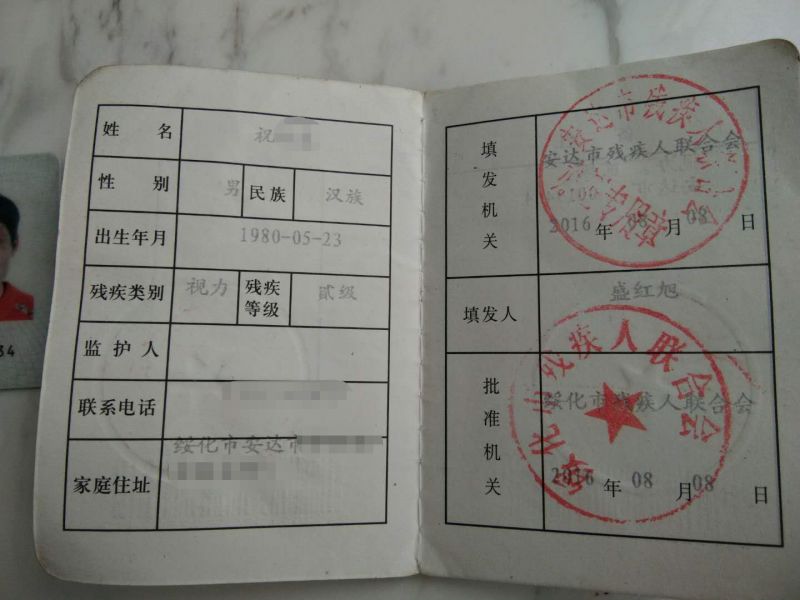 姓 名 祝
性 别 男 民族 汉族
出生年月 1980-05-23
残疾类别 视力 残疾等级 贰级
监护人
联系电话
家庭住址 绥化市安达市
填发机关 安达市残疾人联合会
2016 年 08 月 08 日
填发人 盛红旭
批准机关 绥化市残疾人联合会
2016 年 08 月 08 日
安达市残疾人联合会
绥化市残疾人联合会
34